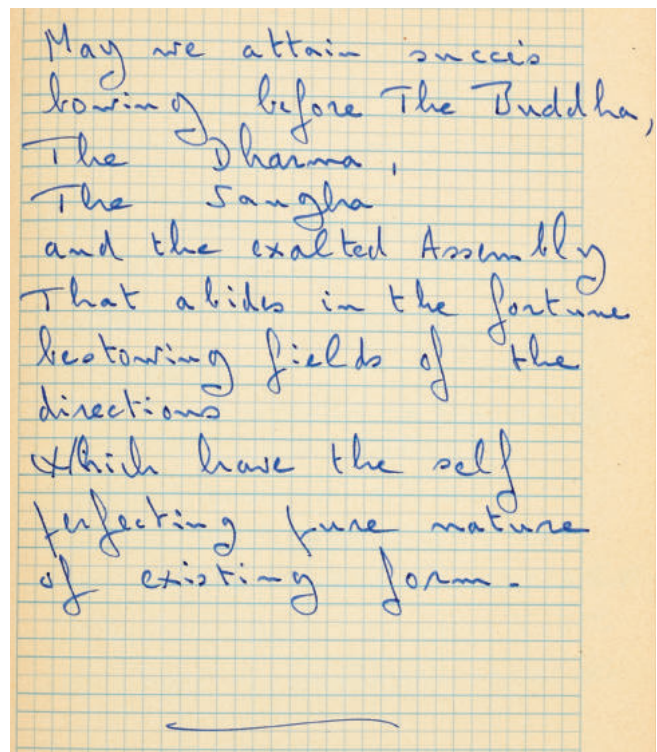 May we attain succès
bowing before The Buddha,
The Dharma,
The Sangha
and the exalted Assembly
That abides in the fortune
bestowing fields of the
directions
Which have the self
perfecting pure nature
of existing form.